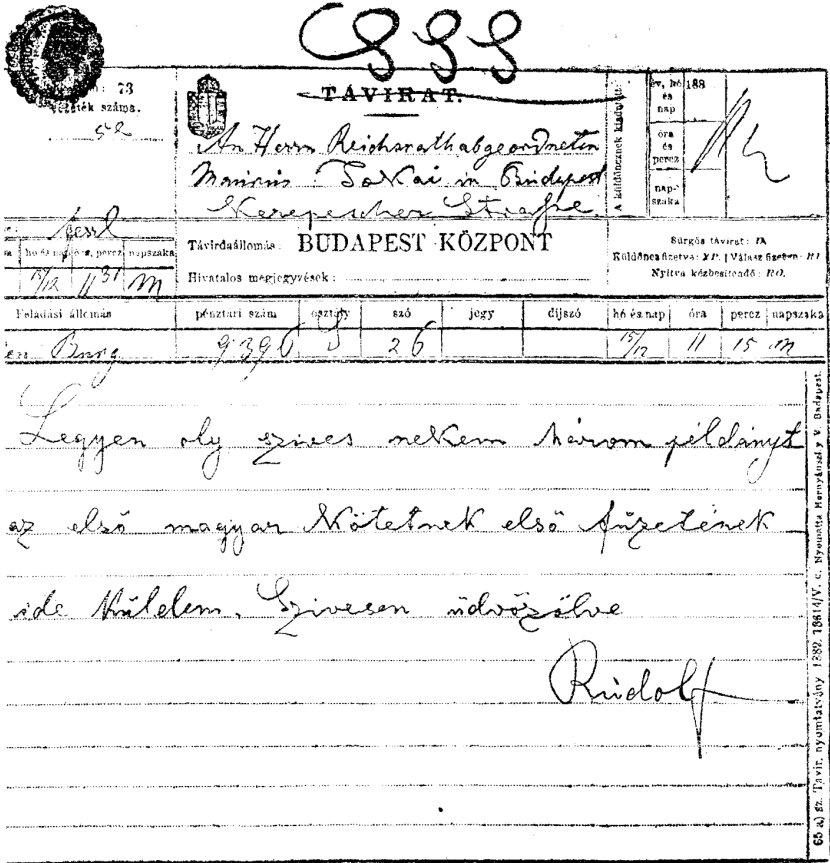 SSS
73
TÁVIRAT.
vezeték száma.
52
An Herrn Reichsrathabgeordneten
Maurus Jokai in Budapest
Kerepescher Strafse
A küldöncznek kiadatott:
év, hó és nap
188
óra és percz
nap-szaka
Távirdaállomás: BUDAPEST KÖZPONT
Hivatalos megjegyzések:
Sürgős távirat: D.
Küldöncz fizetve: XP. | Válasz fizetve: RP.
Nyitva kézbesítendő: RO.
hó és nap óra, percz napszaka
15/12 11 31 m
Feladási állomás pénztári szám osztály szó jegy díjszó hó és nap óra percz napszaka
Burg 9396 S 26 15/12 11 15 m
Legyen oly szives nekem három példányt
az első magyar Kötetnek első füzetének
ide Küldeni. Szivesen üdvözölve
Rudolf
65 a) sz. Távir. nyomtatvány 1882. 13614/V. c. Nyomatta Hornyánszky V. Budapest.